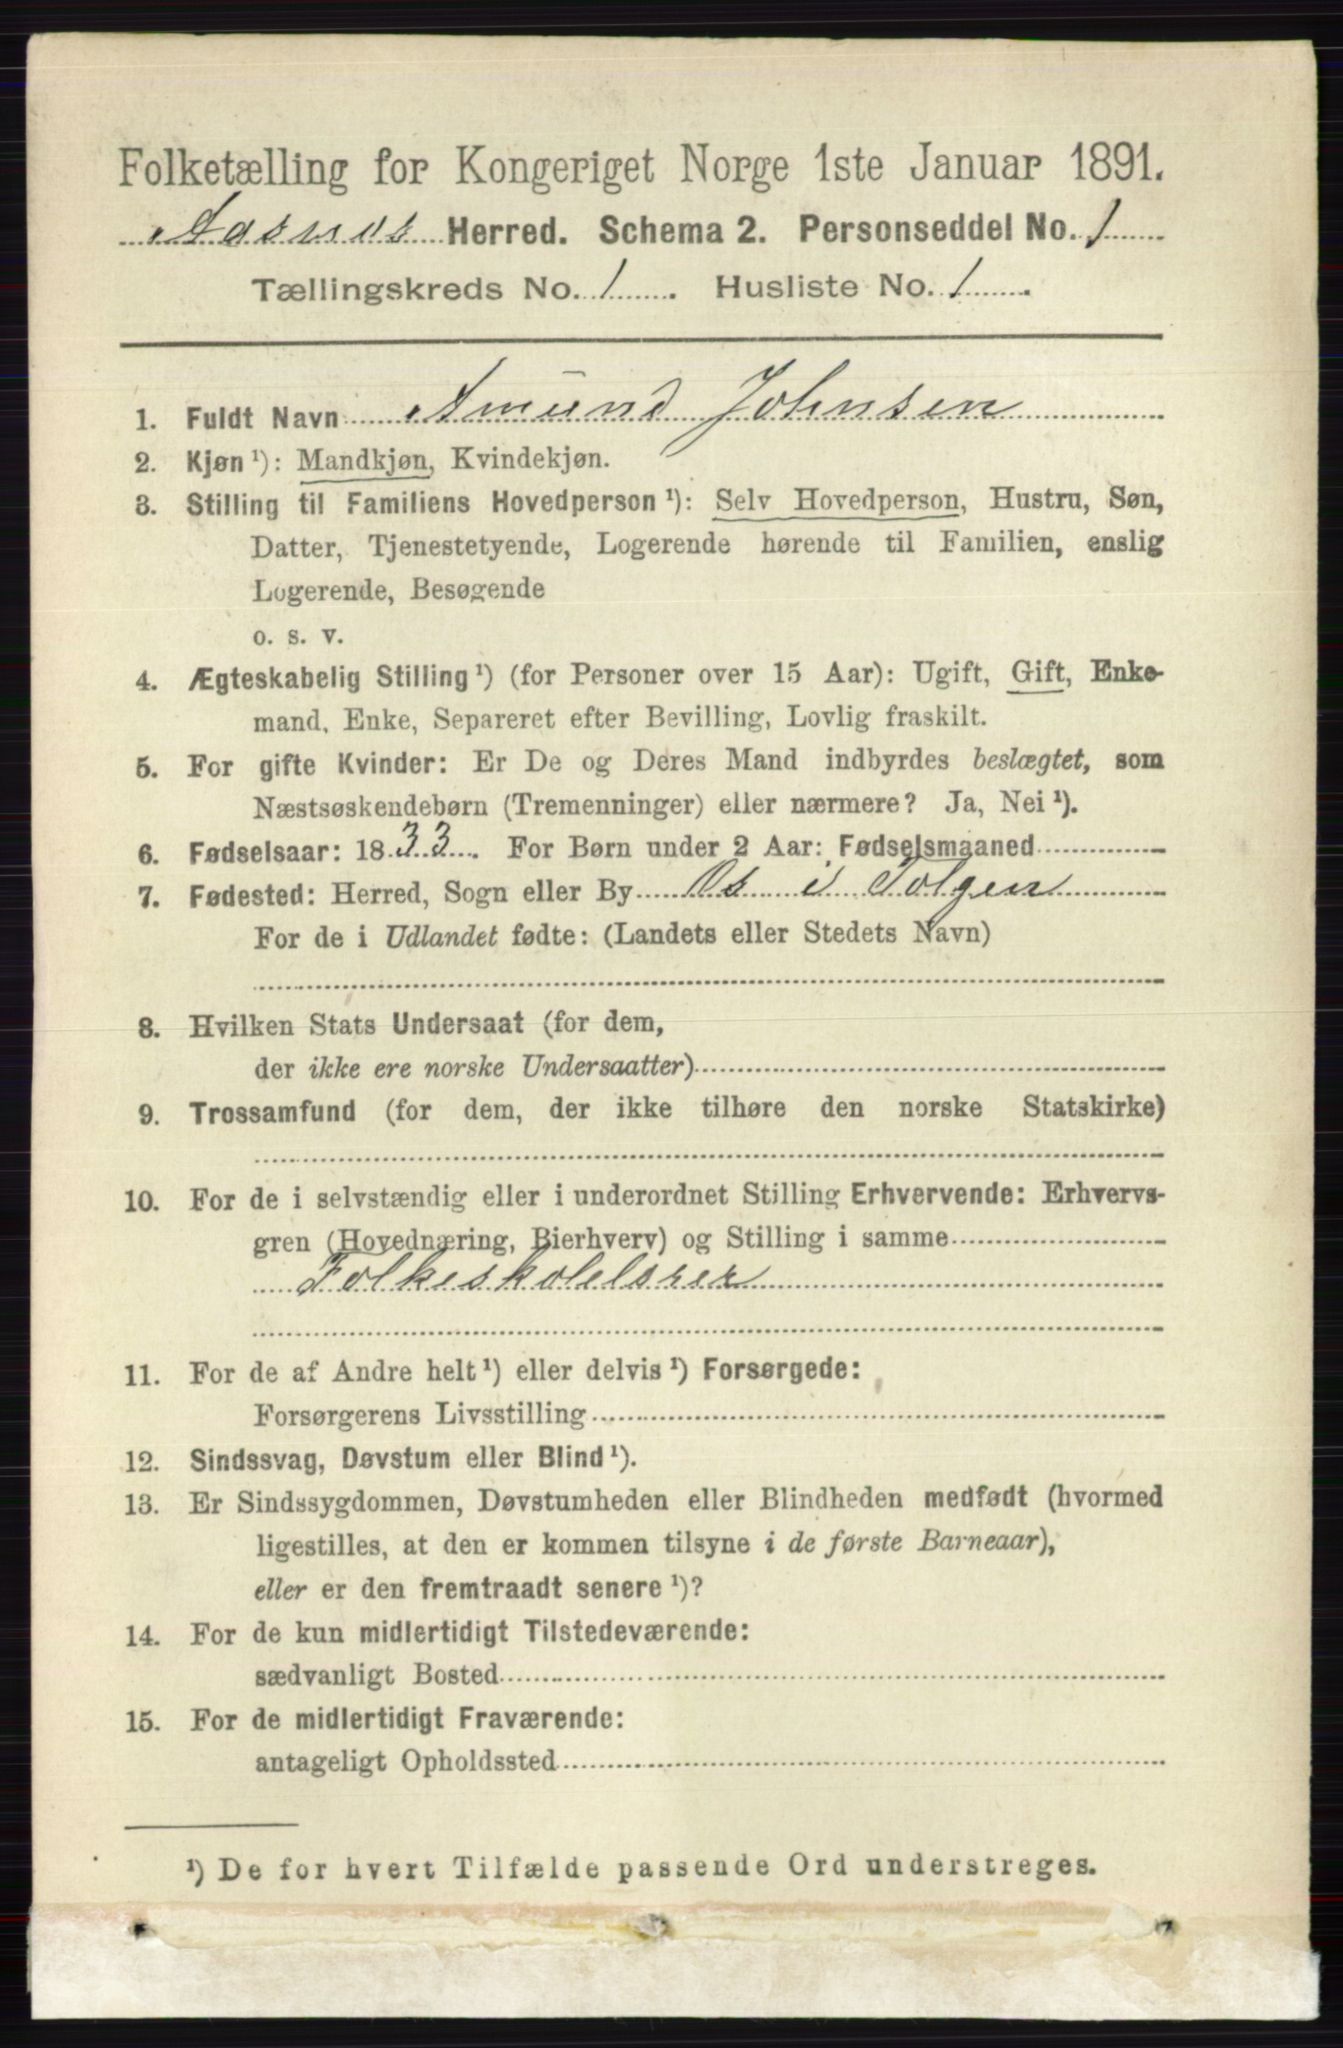 Folketælling for Kongeriget Norge 1ste Januar 1891.
Aasnes Herred. Schema 2. Personseddel No. 1
Tællingskreds No. 1. Husliste No. 1.
1. Fuldt Navn Amund Johnsen
2. Kjøn ¹): Mandkjøn, Kvindekjøn.
3. Stilling til Familiens Hovedperson ¹): Selv Hovedperson, Hustru, Søn,
Datter, Tjenestetyende, Logerende hørende til Familien, enslig
Logerende, Besøgende
o. s. v.
4. Ægteskabelig Stilling ¹) (for Personer over 15 Aar): Ugift, Gift, Enke-
mand, Enke, Separeret efter Bevilling, Lovlig fraskilt.
5. For gifte Kvinder: Er De og Deres Mand indbyrdes beslægtet, som
Næstsøskendebørn (Tremenninger) eller nærmere? Ja, Nei ¹).
6. Fødselsaar: 1833. For Børn under 2 Aar: Fødselsmaaned
7. Fødested: Herred, Sogn eller By Os i Tolgen
For de i Udlandet fødte: (Landets eller Stedets Navn)
8. Hvilken Stats Undersaat (for dem,
der ikke ere norske Undersaatter)
9. Trossamfund (for dem, der ikke tilhøre den norske Statskirke)
10. For de i selvstændig eller i underordnet Stilling Erhvervende: Erhvervs-
gren (Hovednæring, Bierhverv) og Stilling i samme
Folkeskolelærer
11. For de af Andre helt ¹) eller delvis ¹) Forsørgede:
Forsørgerens Livsstilling
12. Sindssvag, Døvstum eller Blind ¹).
13. Er Sindssygdommen, Døvstumheden eller Blindheden medfødt (hvormed
ligestilles, at den er kommen tilsyne i de første Barneaar),
eller er den fremtraadt senere ¹)?
14. For de kun midlertidigt Tilstedeværende:
sædvanligt Bosted
15. For de midlertidigt Fraværende:
antageligt Opholdssted
¹) De for hvert Tilfælde passende Ord understreges.